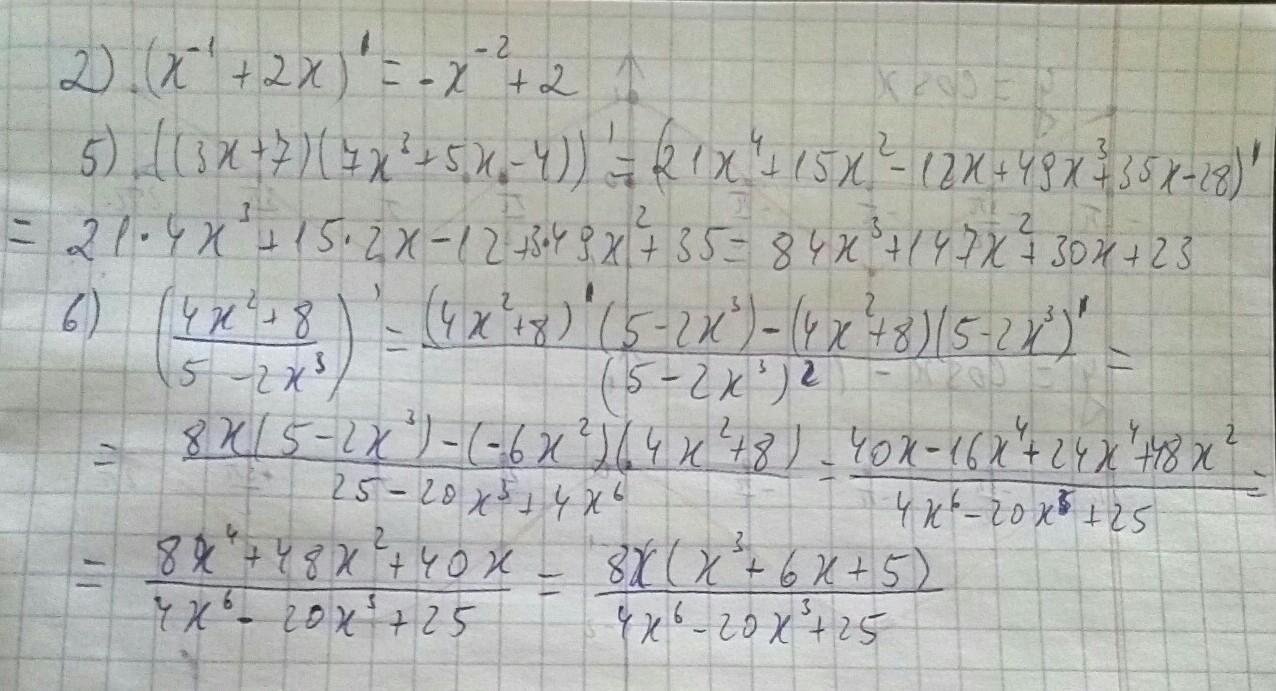 2) (x⁻¹ + 2x)' = -x⁻² + 2
5) ((3x+7)(7x³+5x-4))' = (21x⁴+15x²-12x+49x³+35x-28)'
= 21·4x³+15·2x-12+3·49x²+35= 84x³+147x²+30x+23
6) ((4x²+8)/(5-2x³))' = ((4x²+8)'(5-2x³)-(4x²+8)(5-2x³)')/(5-2x³)² =
= (8x(5-2x³)-(-6x²)(4x²+8))/(25-20x³+4x⁶) = (40x-16x⁴+24x⁴+48x²)/(4x⁶-20x³+25) =
= (8x⁴+48x²+40x)/(4x⁶-20x³+25) = (8x(x³+6x+5))/(4x⁶-20x³+25)